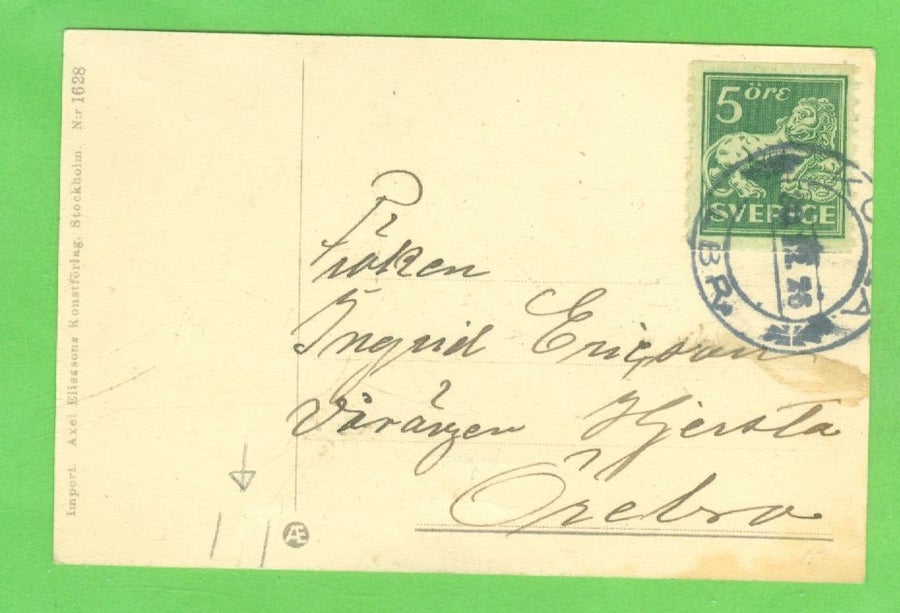 Import. Axel Eliassons Konstförlag. Stockholm. N:r 1628
5 öre
SVERIGE
Fröken
Ingrid Ericson
Hjersta
Örebro
Æ